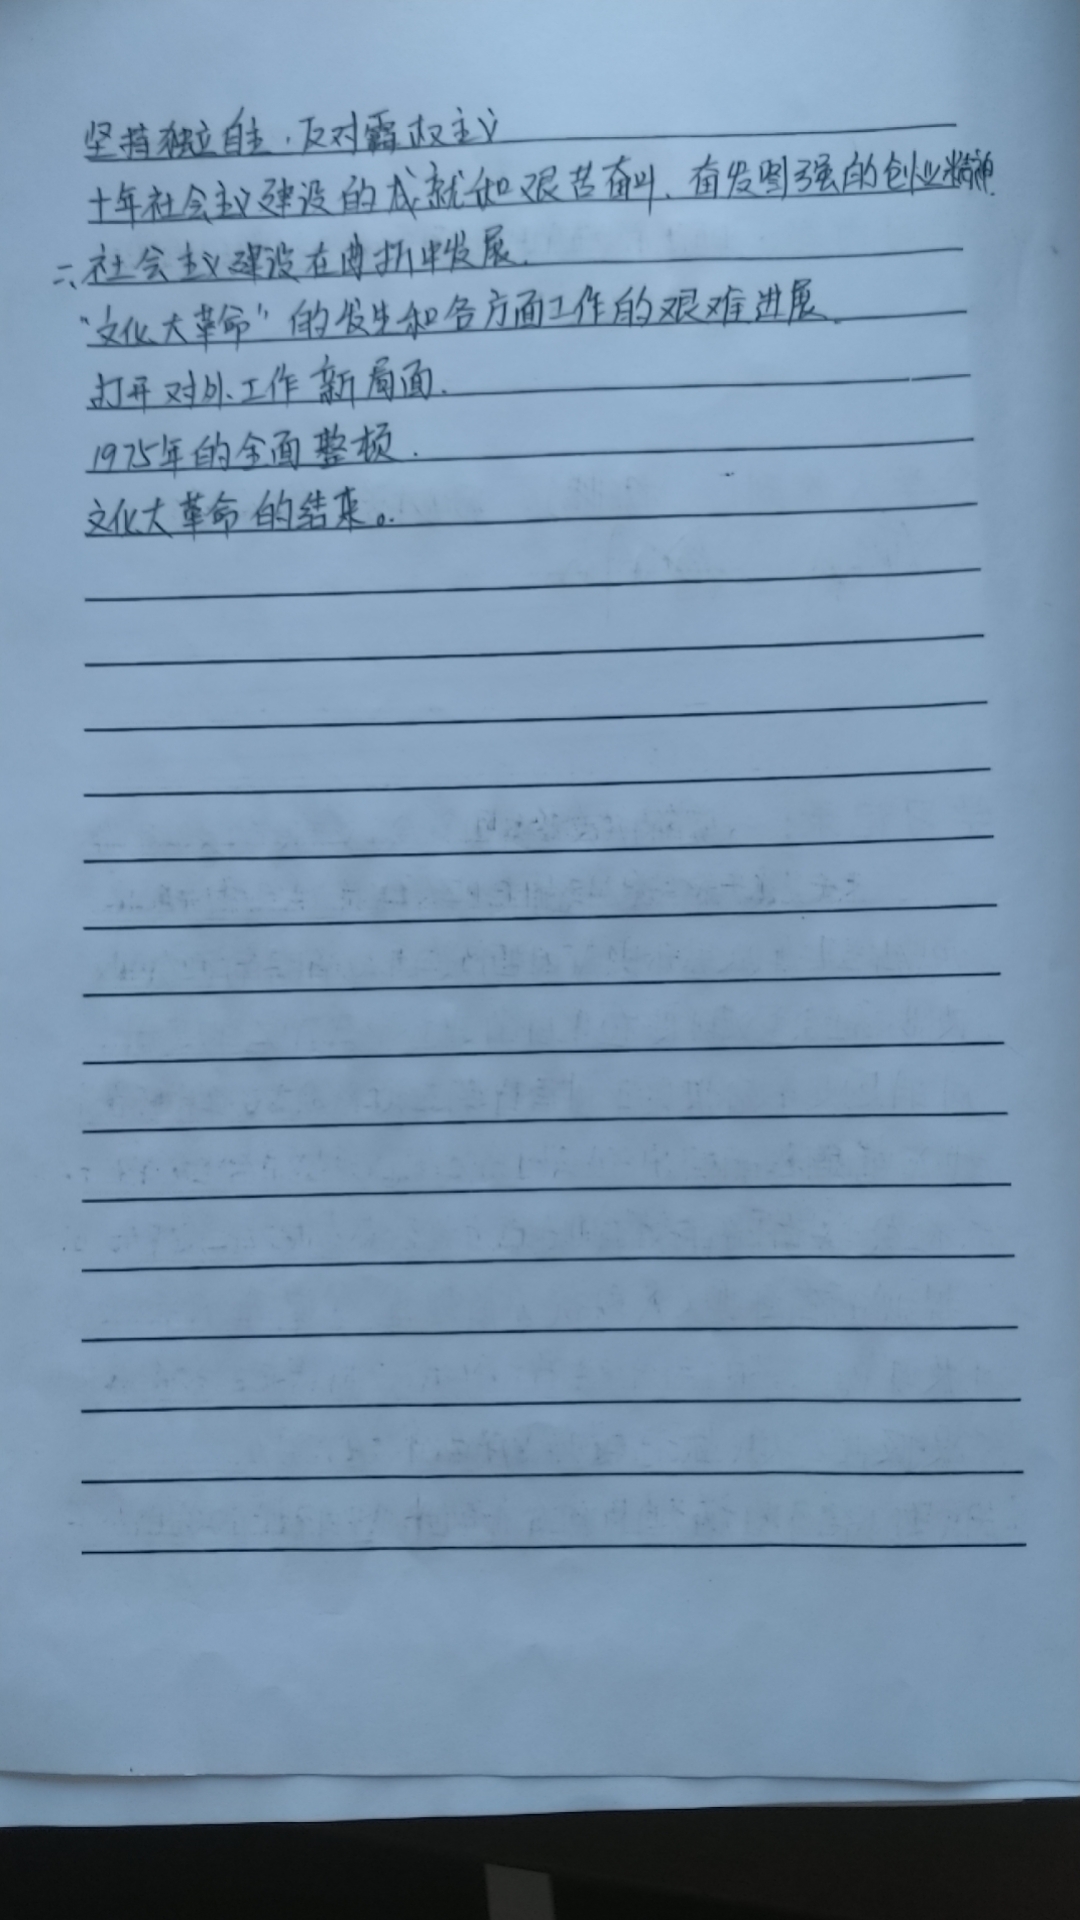 坚持独立自主.反对霸权主义
十年社会主义建设的成就和艰苦奋斗、奋发图强的创业精神
二、社会主义建设在曲折中发展.
“文化大革命”的发生和各方面工作的艰难进展.
打开对外工作新局面.
1975年的全面整顿.
文化大革命的结束。.